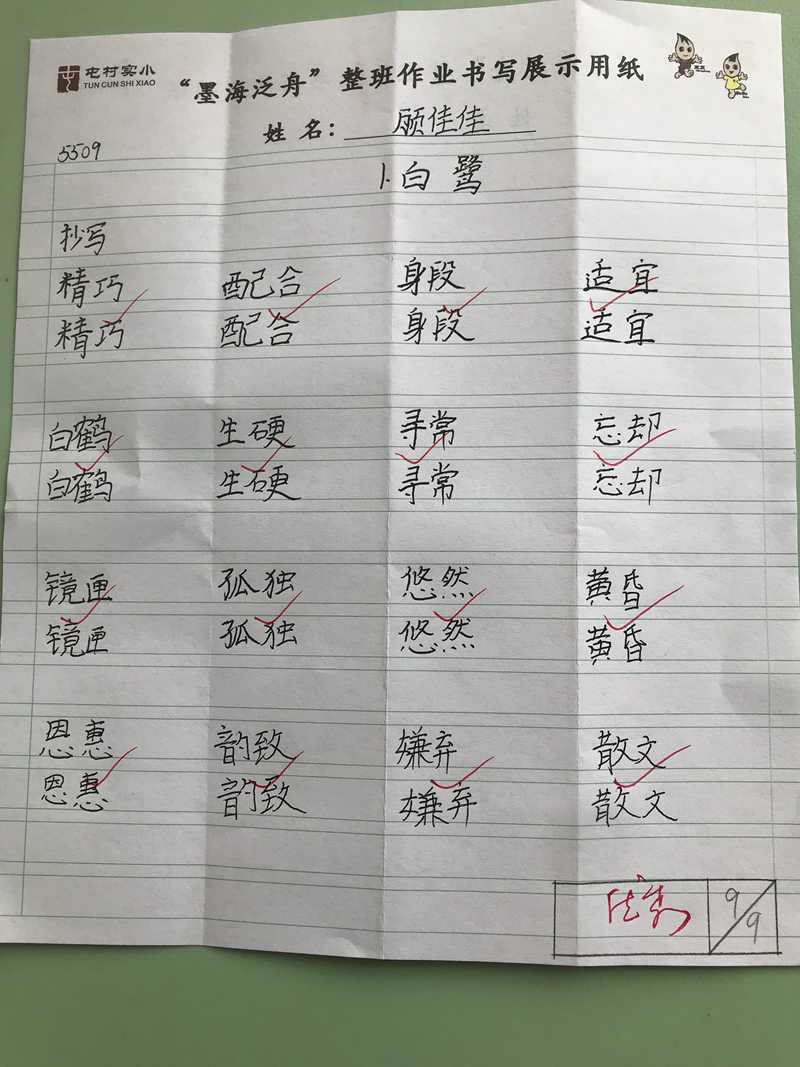 屯村实小
TUN CUN SHI XIAO
“墨海泛舟”整班作业书写展示用纸
姓名：顾佳佳
5509
1.白鹭
抄写
精巧 配合 身段 适宜
精巧 配合 身段 适宜
白鹤 生硬 寻常 忘却
白鹤 生硬 寻常 忘却
镜匣 孤独 悠然 黄昏
镜匣 孤独 悠然 黄昏
恩惠 韵致 嫌弃 散文
恩惠 韵致 嫌弃 散文
优秀 9/9